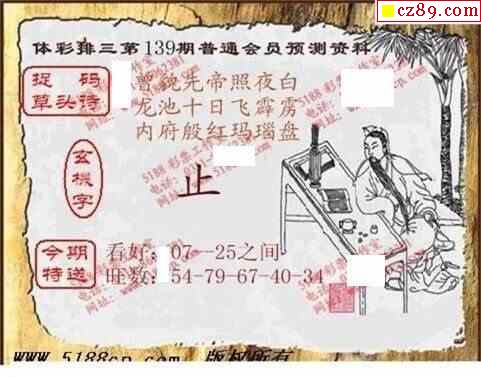 cz89.com
体彩排三第139期普通会员预测资料
捉码
草头诗
曾貌先帝照夜白
龙池十日飞霹雳
内府殷红玛瑙盘
玄机字
止
今期
特送
看好:07--25之间
旺数:54-79-67-40-34
www.5188cp.com 版权所有